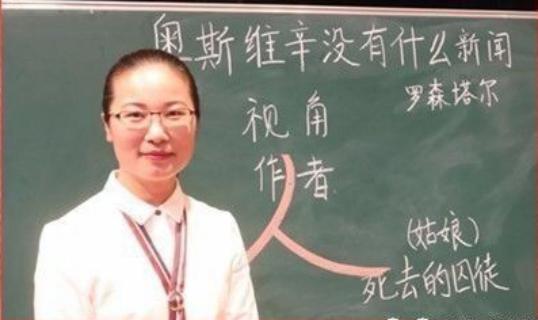 奥斯维辛没有什么新闻
罗森塔尔
视角
作者
人
(姑娘)
死去的囚徒